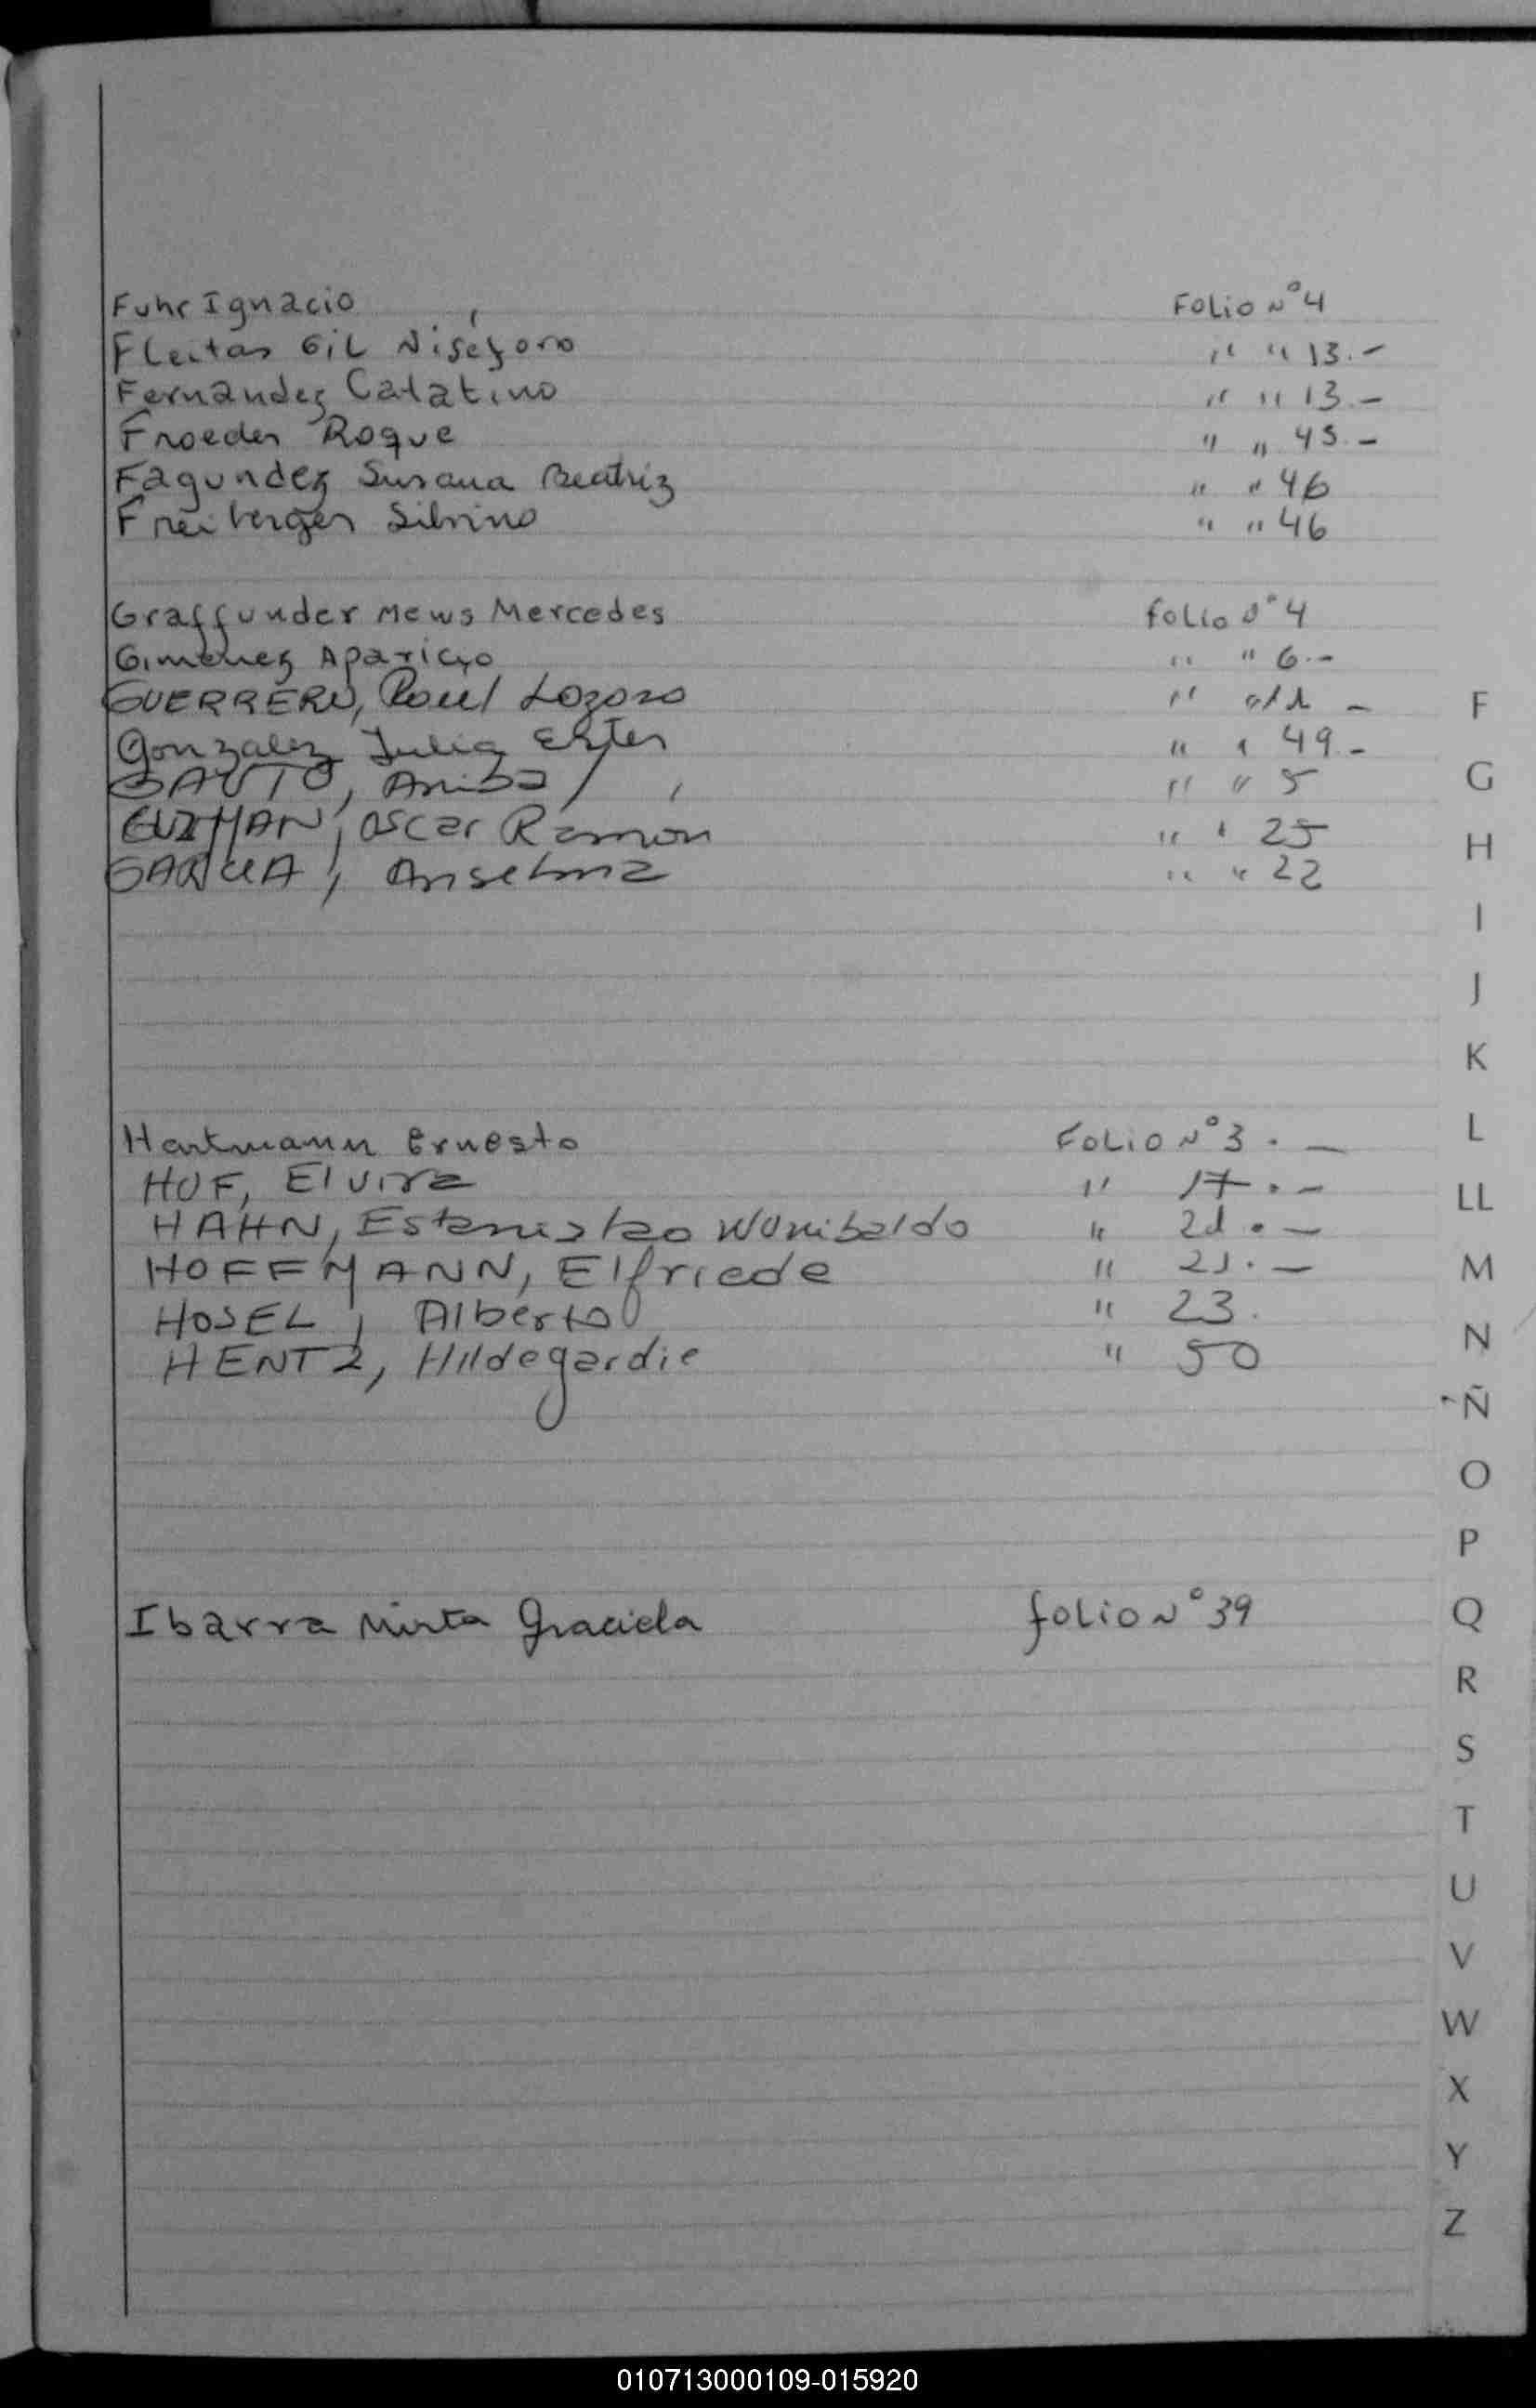 Fuhr Ignacio Folio N°4
Fleitas Gil Niséforo " " 13.-
Fernandez Catalino " " 13.-
Froeder Roque " " 45.-
Fagundez Susana Beatriz " " 46
Freiberger Silvino " " 46
Graffunder Mews Mercedes folio N°4
Gimenez Aparicio " " 6.-
GUERRERO, Raul " -
F
Gonzalez Julia Ester " " 49.-
GAUTO, Anibal " " 5
G
GUZMAN, Oscar Ramon " " 25
H
GARCIA, Anselma " " 22
I
J
K
Hartmann Ernesto FOLIO N°3.-
L
HOF, Elvira " 17.-
LL
HAHN, Estanislao Wunibaldo " 21.-
HOFFMANN, Elfriede " 21.-
M
HOSEL, Alberto " 23.
N
HENTZ, Hildegardie " 50
Ñ
O
P
Ibarra Mirta Graciela folio N°39
Q
R
S
T
U
V
W
X
Y
Z
010713000109-015920